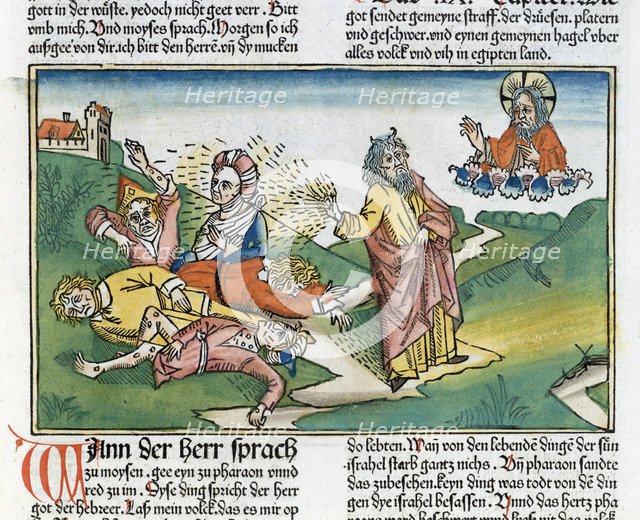 gott in der wüste. yedoch nicht geet verr. Bitt
vmb mich. Vnd moyses sprach. Morgen so ich
außgee von dir. ich bitt den herrē. vñ dy mucken
got sendet gemeyne straff. der drüesen. platern
vnd geschwer. vnd eynen gemeynen hagel vber
alles volck vnd vih in egipten land.
Heritage Heritage Heritage
Images Images Images
Heritage Heritage Heritage
Images Images Images
Heritage Heritage Heritage
Images Images Images
WAnn der herr sprach
zu moysen. gee eyn zu pharaon vnnd
red zu im. Dyse ding spricht der herr
got der hebreer. Laß mein volck. das es mir op
do lebten. Wañ von den lebendē dingē der sün
israhel starb gantz nichs. Vñ pharaon sandte
das zubesehen. keyn ding was todt von dē din
gen dye israhel besassen. Vnnd das hertz pha